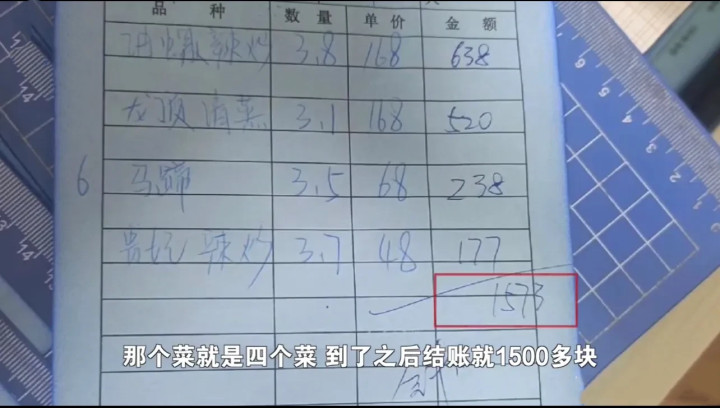 品 种 数 量 单 价 金 额
辣炒 3.8 168 638
龙虾 清蒸 3.1 168 520
6 马蹄 3.5 68 238
贵妃 辣炒 3.7 48 177
1573
那个菜就是四个菜 到了之后结账就1500多块